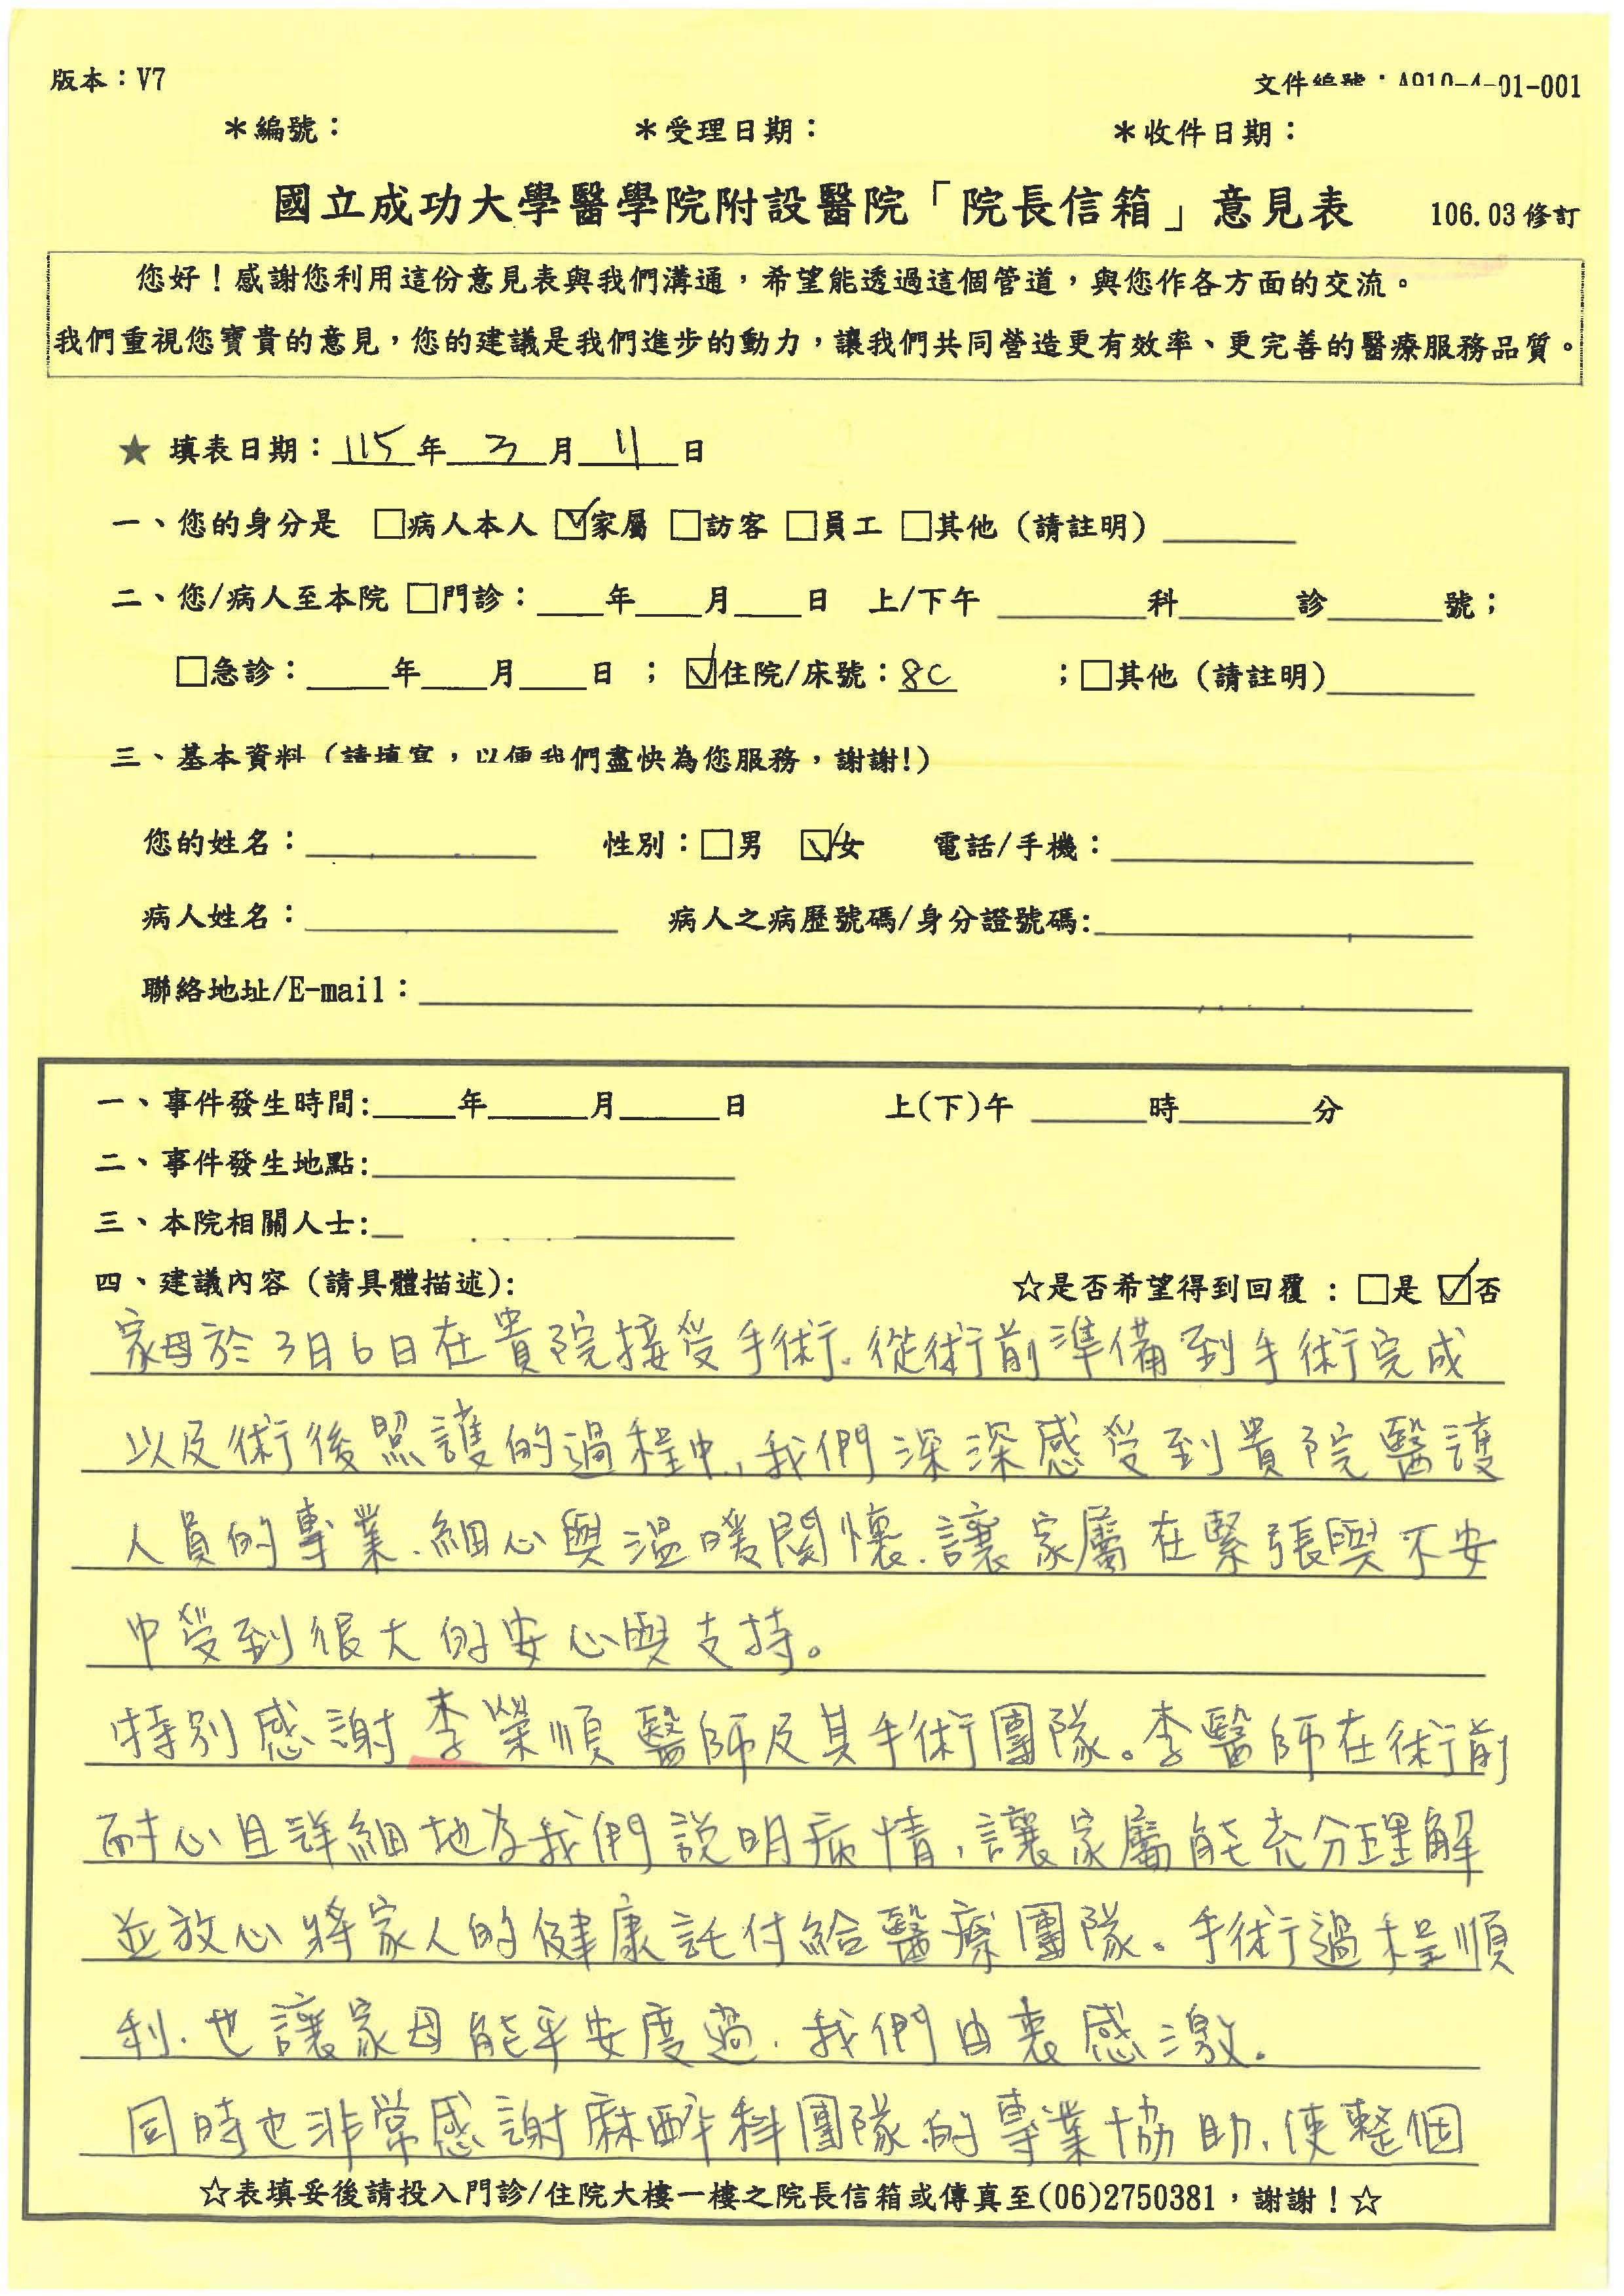 版本：V7
文件編號：A910-4-01-001
＊編號： ＊受理日期： ＊收件日期：
國立成功大學醫學院附設醫院「院長信箱」意見表 106.03修訂
您好！感謝您利用這份意見表與我們溝通，希望能透過這個管道，與您作各方面的交流。
我們重視您寶貴的意見，您的建議是我們進步的動力，讓我們共同營造更有效率、更完善的醫療服務品質。
★ 填表日期：115年3月11日
一、您的身分是 □病人本人 ☑家屬 □訪客 □員工 □其他（請註明）
二、您/病人至本院 □門診：___年___月___日 上/下午 ______科______診______號；
□急診：___年___月___日 ； ☑住院/床號：8C ；□其他（請註明）
三、基本資料（請填寫，以便我們盡快為您服務，謝謝!）
您的姓名： 性別：□男 ☑女 電話/手機：
病人姓名： 病人之病歷號碼/身分證號碼:
聯絡地址/E-mail：
一、事件發生時間:___年___月___日 上(下)午 ___時___分
二、事件發生地點:
三、本院相關人士:
四、建議內容（請具體描述）: ☆是否希望得到回覆 ：□是 ☑否
家母於3月6日在貴院接受手術.從術前準備到手術完成
以及術後照護的過程中,我們深深感受到貴院醫護
人員的專業.細心與溫暖關懷.讓家屬在緊張與不安
中受到很大的安心與支持。
特別感謝李榮順醫師及其手術團隊。李醫師在術前
耐心且詳細地為我們說明病情,讓家屬能充分理解
並放心將家人的健康託付給醫療團隊。手術過程順
利.也讓家母能平安度過.我們由衷感激.
同時也非常感謝麻醉科團隊的專業協助,使整個
☆表填妥後請投入門診/住院大樓一樓之院長信箱或傳真至(06)2750381，謝謝！☆